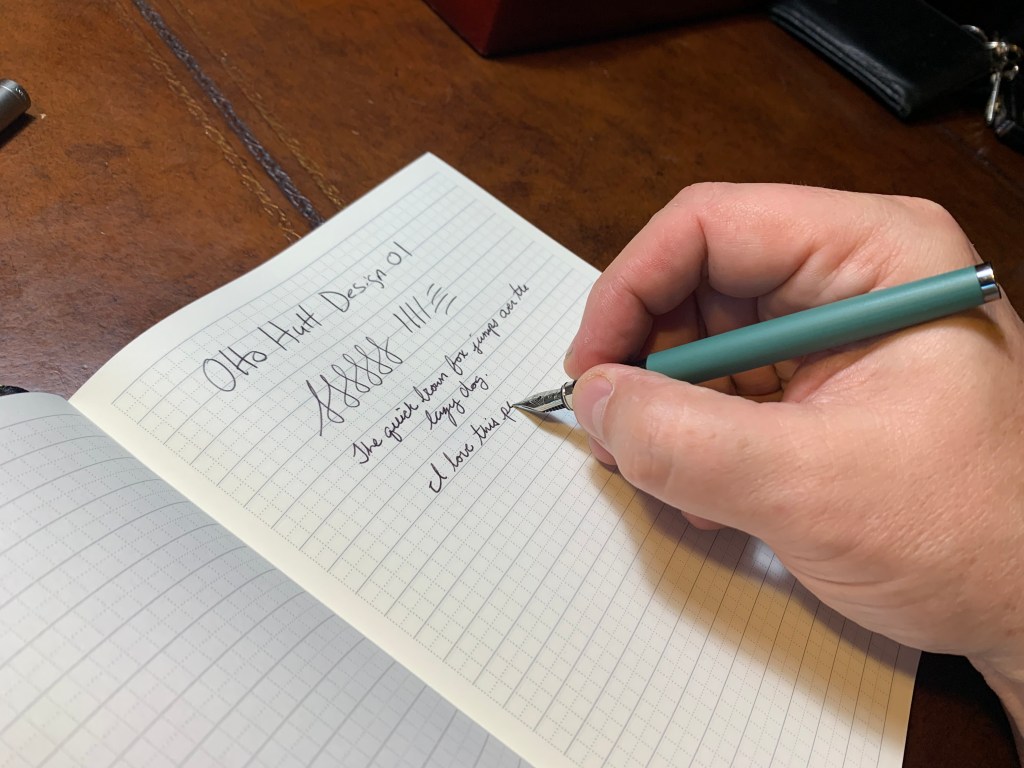 Otto Hutt Design 01
The quick brown fox jumps over the
lazy dog.
I love this